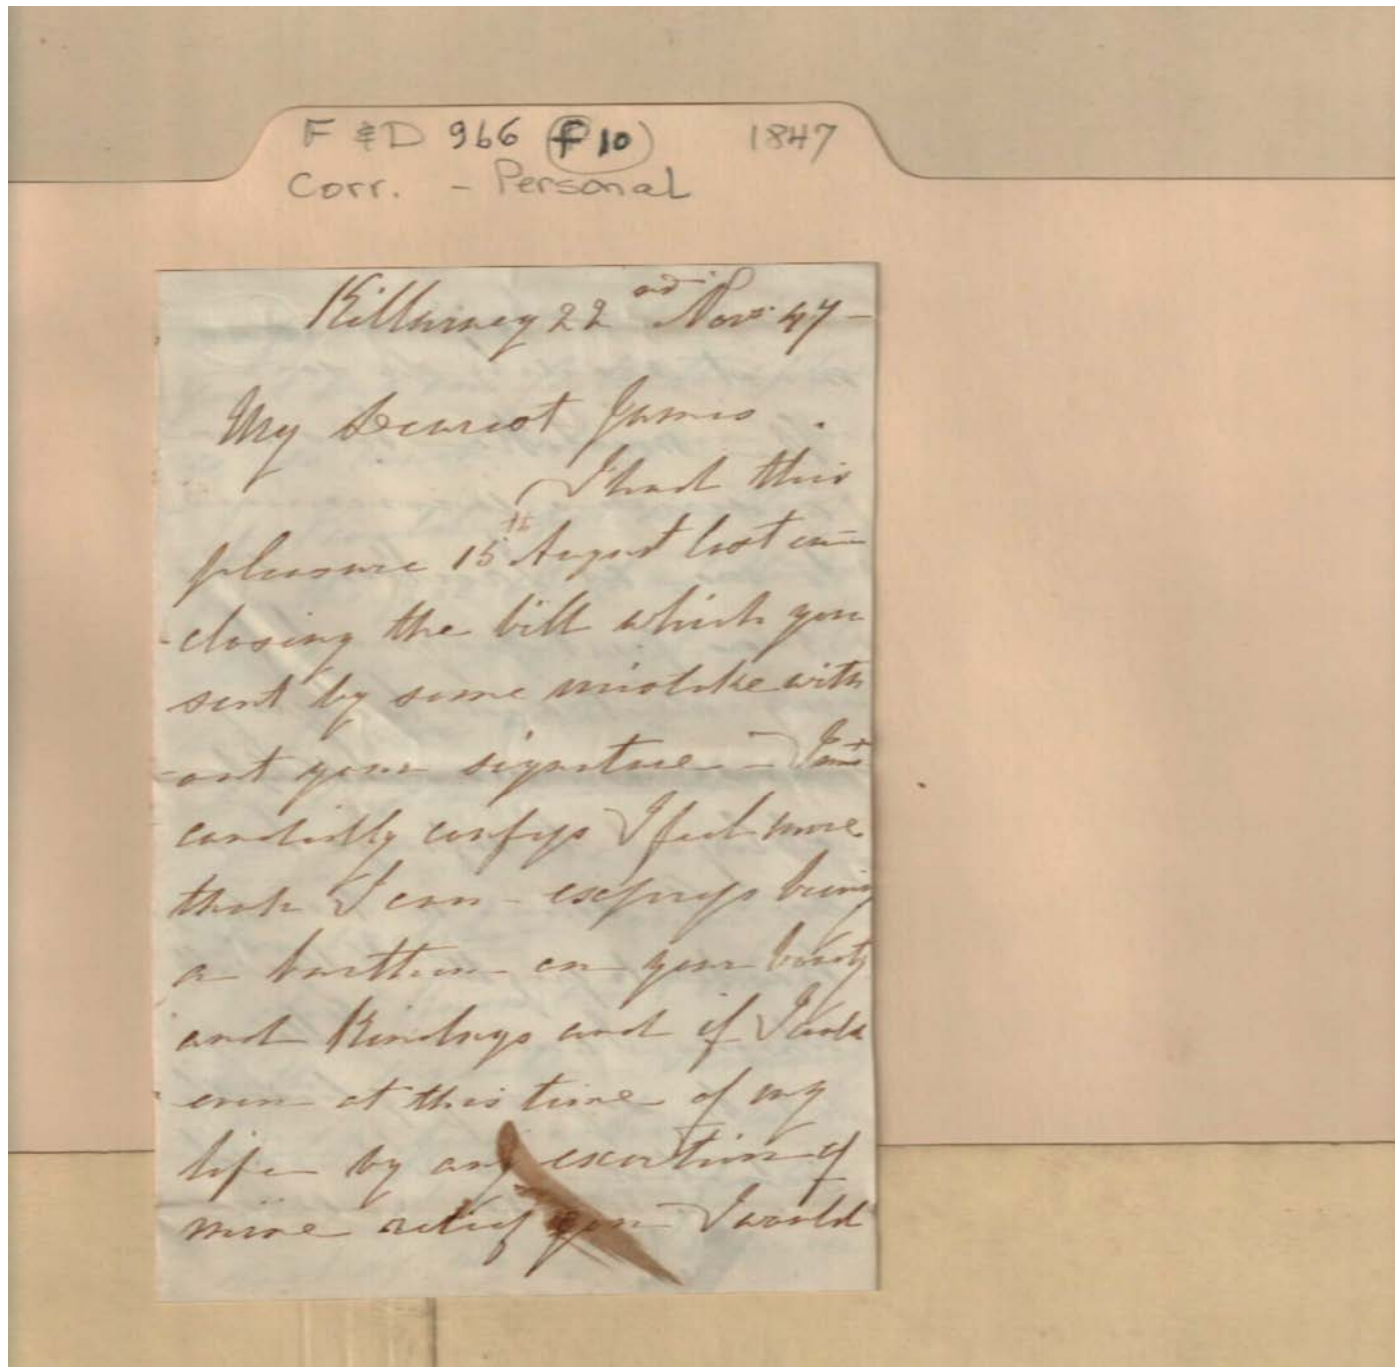 F & D 966 f 10 1847
Corr. - Personal
Killarney 22nd Novr 47 -
My Dearest James.
I had this
pleasure 15th August last en=
-closing the bill which you
sent by some mistake with
-out your signature - I must
candidly confess I feel more
than I can express being
a burthen on your bounty
and Kindness and if I could
even at this time of my
life by any exertion of
mine relief you I would